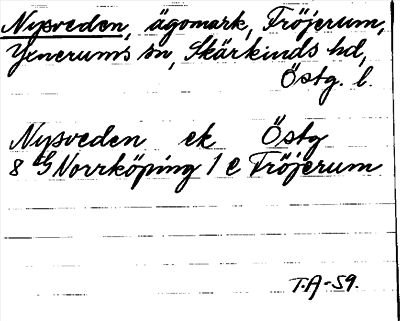 Nysveden, ägomark, Fröjerum,
Yxnerums sn, Skärkinds hd,
Östg. l.
Nysveden ek Östg
8 G Norrköping 1 e Fröjerum
T.A-59.